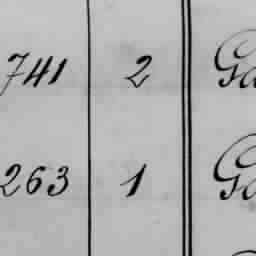 741 2 Ga
263 1 Ga